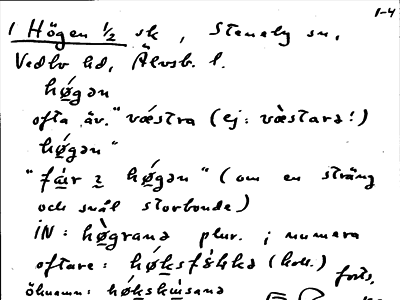 1-4
1 Högen 1/2 sk, Steneby sn,
Vedbo hd, Älvsb. l.
hǿ̱gən
ofta äv. "vǽstra (ej: væ̀stara!)
hǿ̱gən"
"fá̱r i hǿ̱gən" (om en sträng
och snål storbonde)
iN: hø̱̀grana plur. ; numera
oftare: hǿksfɑ̀lka (koll.)
forts.
öknamn: